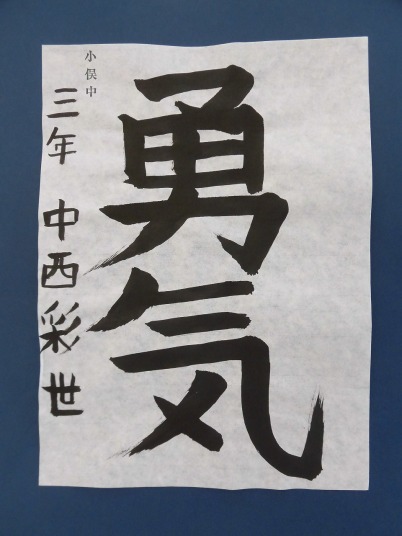 勇気
小俣中
三年 中西彩世